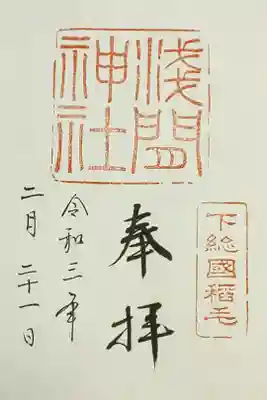 下総國稲毛
浅間
神社
奉拝
令和三年
二月二十一日